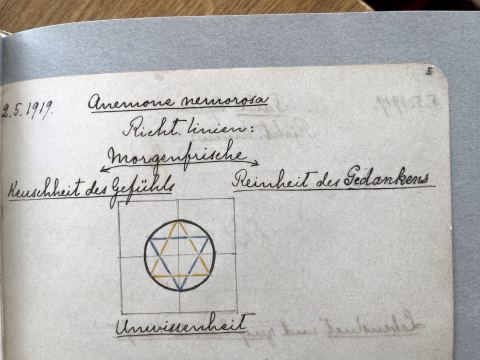 5
2.5.1919. Anemone nemorosa
Richt. linien:
Morgenfrische
Keuschheit des Gefühls Reinheit des Gedankens
Unwissenheit